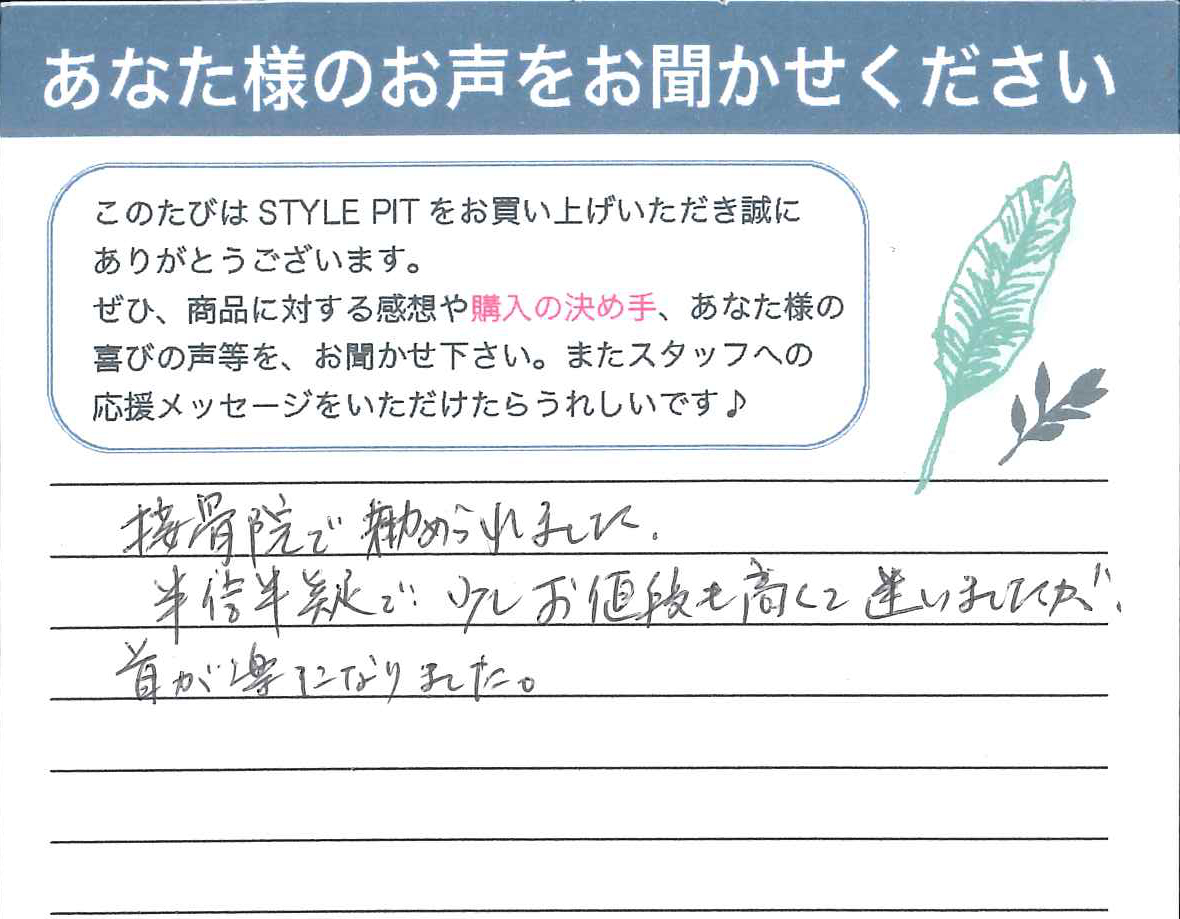 あなた様のお声をお聞かせください
このたびは STYLE PIT をお買い上げいただき誠に
ありがとうございます。
ぜひ、商品に対する感想や購入の決め手、あなた様の
喜びの声等を、お聞かせ下さい。またスタッフへの
応援メッセージをいただけたらうれしいです♪
接骨院で勧められました.
半信半疑で少しお値段も高くて迷いましたが、
首が楽になりました。